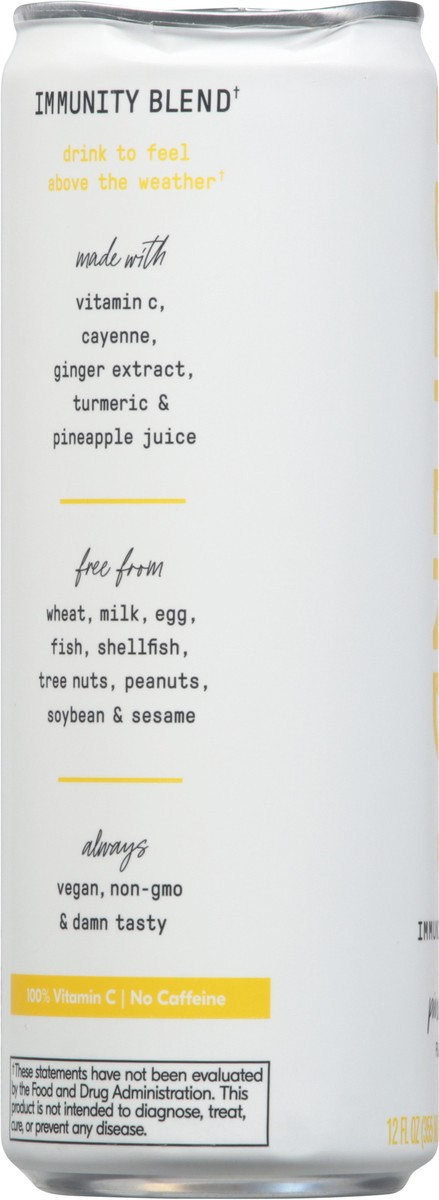 IMMUNITY BLEND†
drink to feel
above the weather†
made with
vitamin c,
cayenne,
ginger extract,
turmeric &
pineapple juice
free from
wheat, milk, egg,
fish, shellfish,
tree nuts, peanuts,
soybean & sesame
always
vegan, non-gmo
& damn tasty
100% Vitamin C | No Caffeine
†These statements have not been evaluated
by the Food and Drug Administration. This
product is not intended to diagnose, treat,
cure, or prevent any disease.
12 FL OZ (355